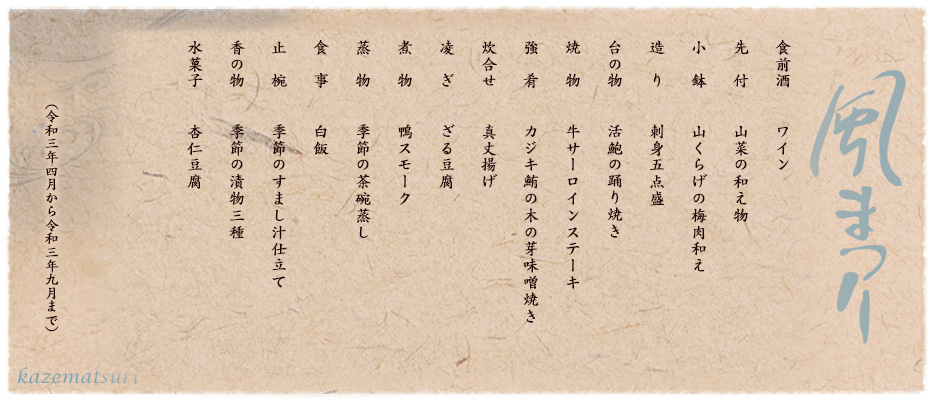 風まつり
食前酒 ワイン
先付 山菜の和え物
小鉢 山くらげの梅肉和え
造り 刺身五点盛
台の物 活鮑の踊り焼き
焼物 牛サーロインステーキ
強肴 カジキ鮪の木の芽味噌焼き
炊合せ 真丈揚げ
凌ぎ ざる豆腐
煮物 鴨スモーク
蒸物 季節の茶碗蒸し
食事 白飯
止椀 季節のすまし汁仕立て
香の物 季節の漬物三種
水菓子 杏仁豆腐
(令和三年四月から令和三年九月まで)
kazematsuri